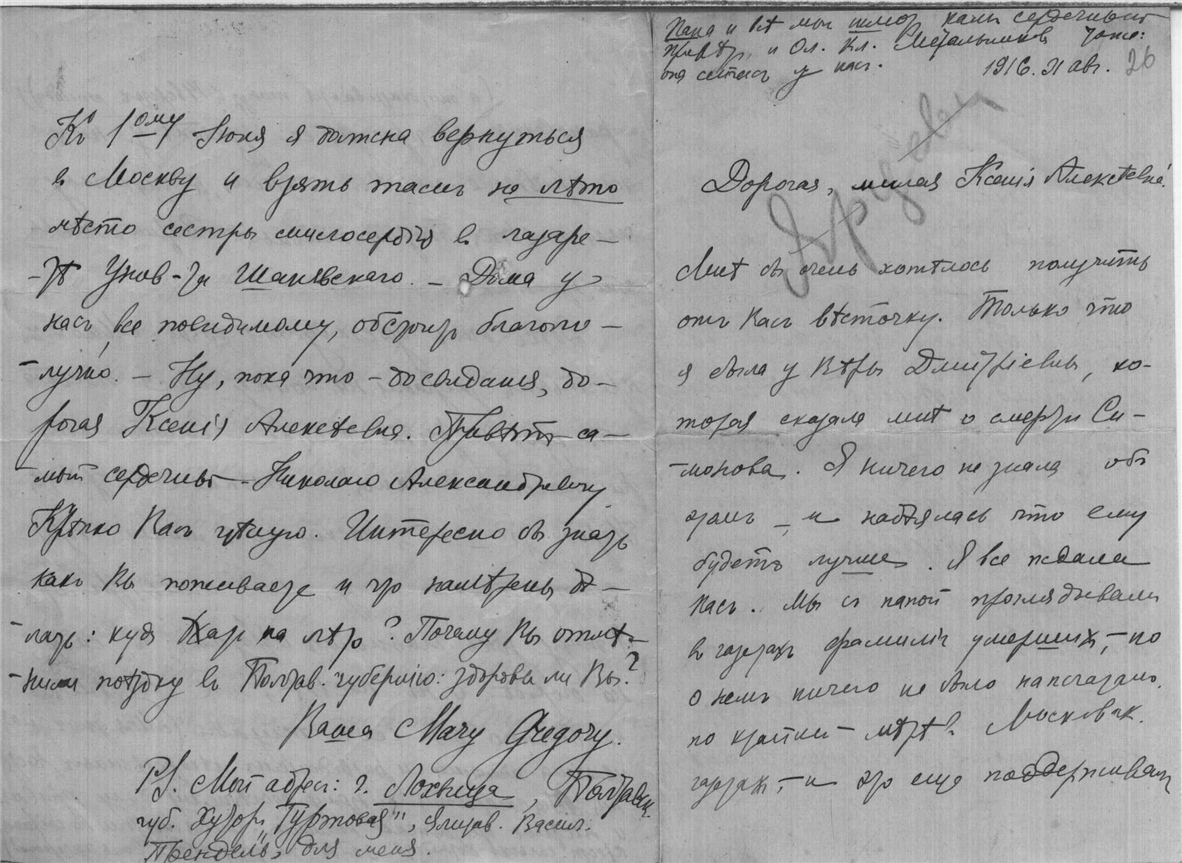 Папа и всѣ мы шлют вамъ сердечный
привѣт, и Ол. Кл. Метальников также:
она сейчас у нас. 1916. 31 авг. 26
Дорогая, милая Ксенія Алексѣевна!
Мнѣ бы очень хотѣлось получить
отъ Васъ вѣсточку. Только что
я была у Вѣры Дмитріевны, ко-
торая сказала мнѣ о смерти Си-
-монова. Я ничего не знала объ
этомъ – и надѣялась что ему
будетъ лучше. Я все ждала
Васъ. Мы съ папой проглядывали
въ газетахъ фамиліи умершихъ, – но
о немъ ничего не было напечатано,
по крайней – мѣрѣ въ Московск.
газетах, – и это еще поддерживало
Къ 1ому Іюня я должна вернуться
въ Москву и взять тамъ на лѣто
мѣсто сестры милосердія въ лазаре-
-тѣ Унив-та Шанявскаго. – Дома у
насъ, все повидимому, обстоит благопо-
-лучно. – Ну, пока что – досвиданія, до-
рогая Ксенія Алексѣевна. Привѣтъ са-
мый сердечный – Николаю Александровичу
Крѣпко Васъ цѣлую. Интересно бы знать
какъ Вы поживаете и что намѣрены дѣ-
-лать: куда ѣхать на лѣто? Почему Вы отмѣ-
-нили поѣздку въ Полтав. губернію: здоровы ли Вы?
Ваша Mary Gregory.
P.S. Мой адрес: г. Лохвица, Полтавск.
губ. Хутор "Гуртовая", Елизав. Васил.
Трендель, для меня.